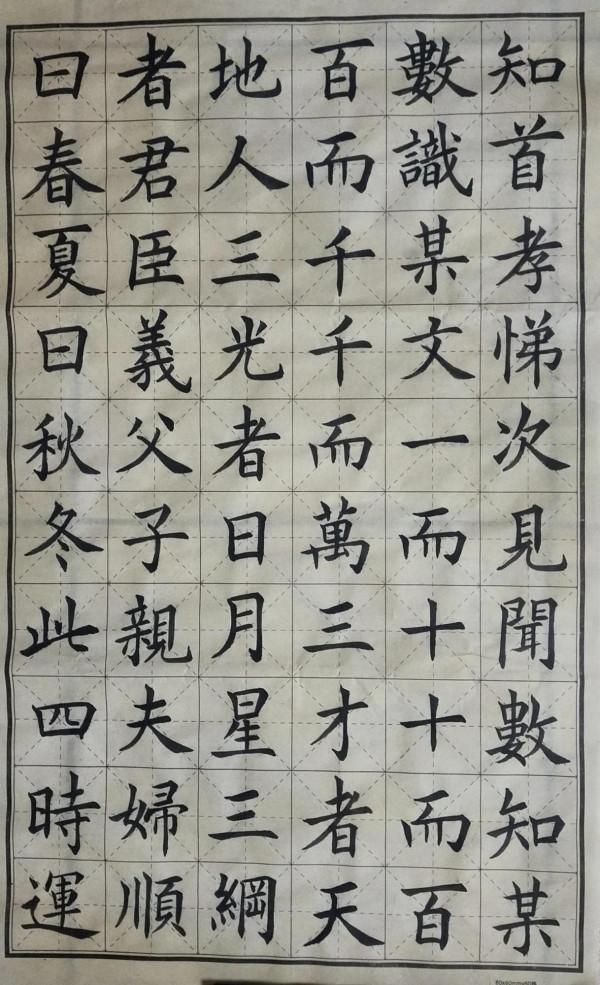 知首孝悌次見聞數知某
數識某文一而十十而百
百而千千而萬三才者天
地人三光者日月星三綱
者君臣義父子親夫婦順
曰春夏曰秋冬此四時運